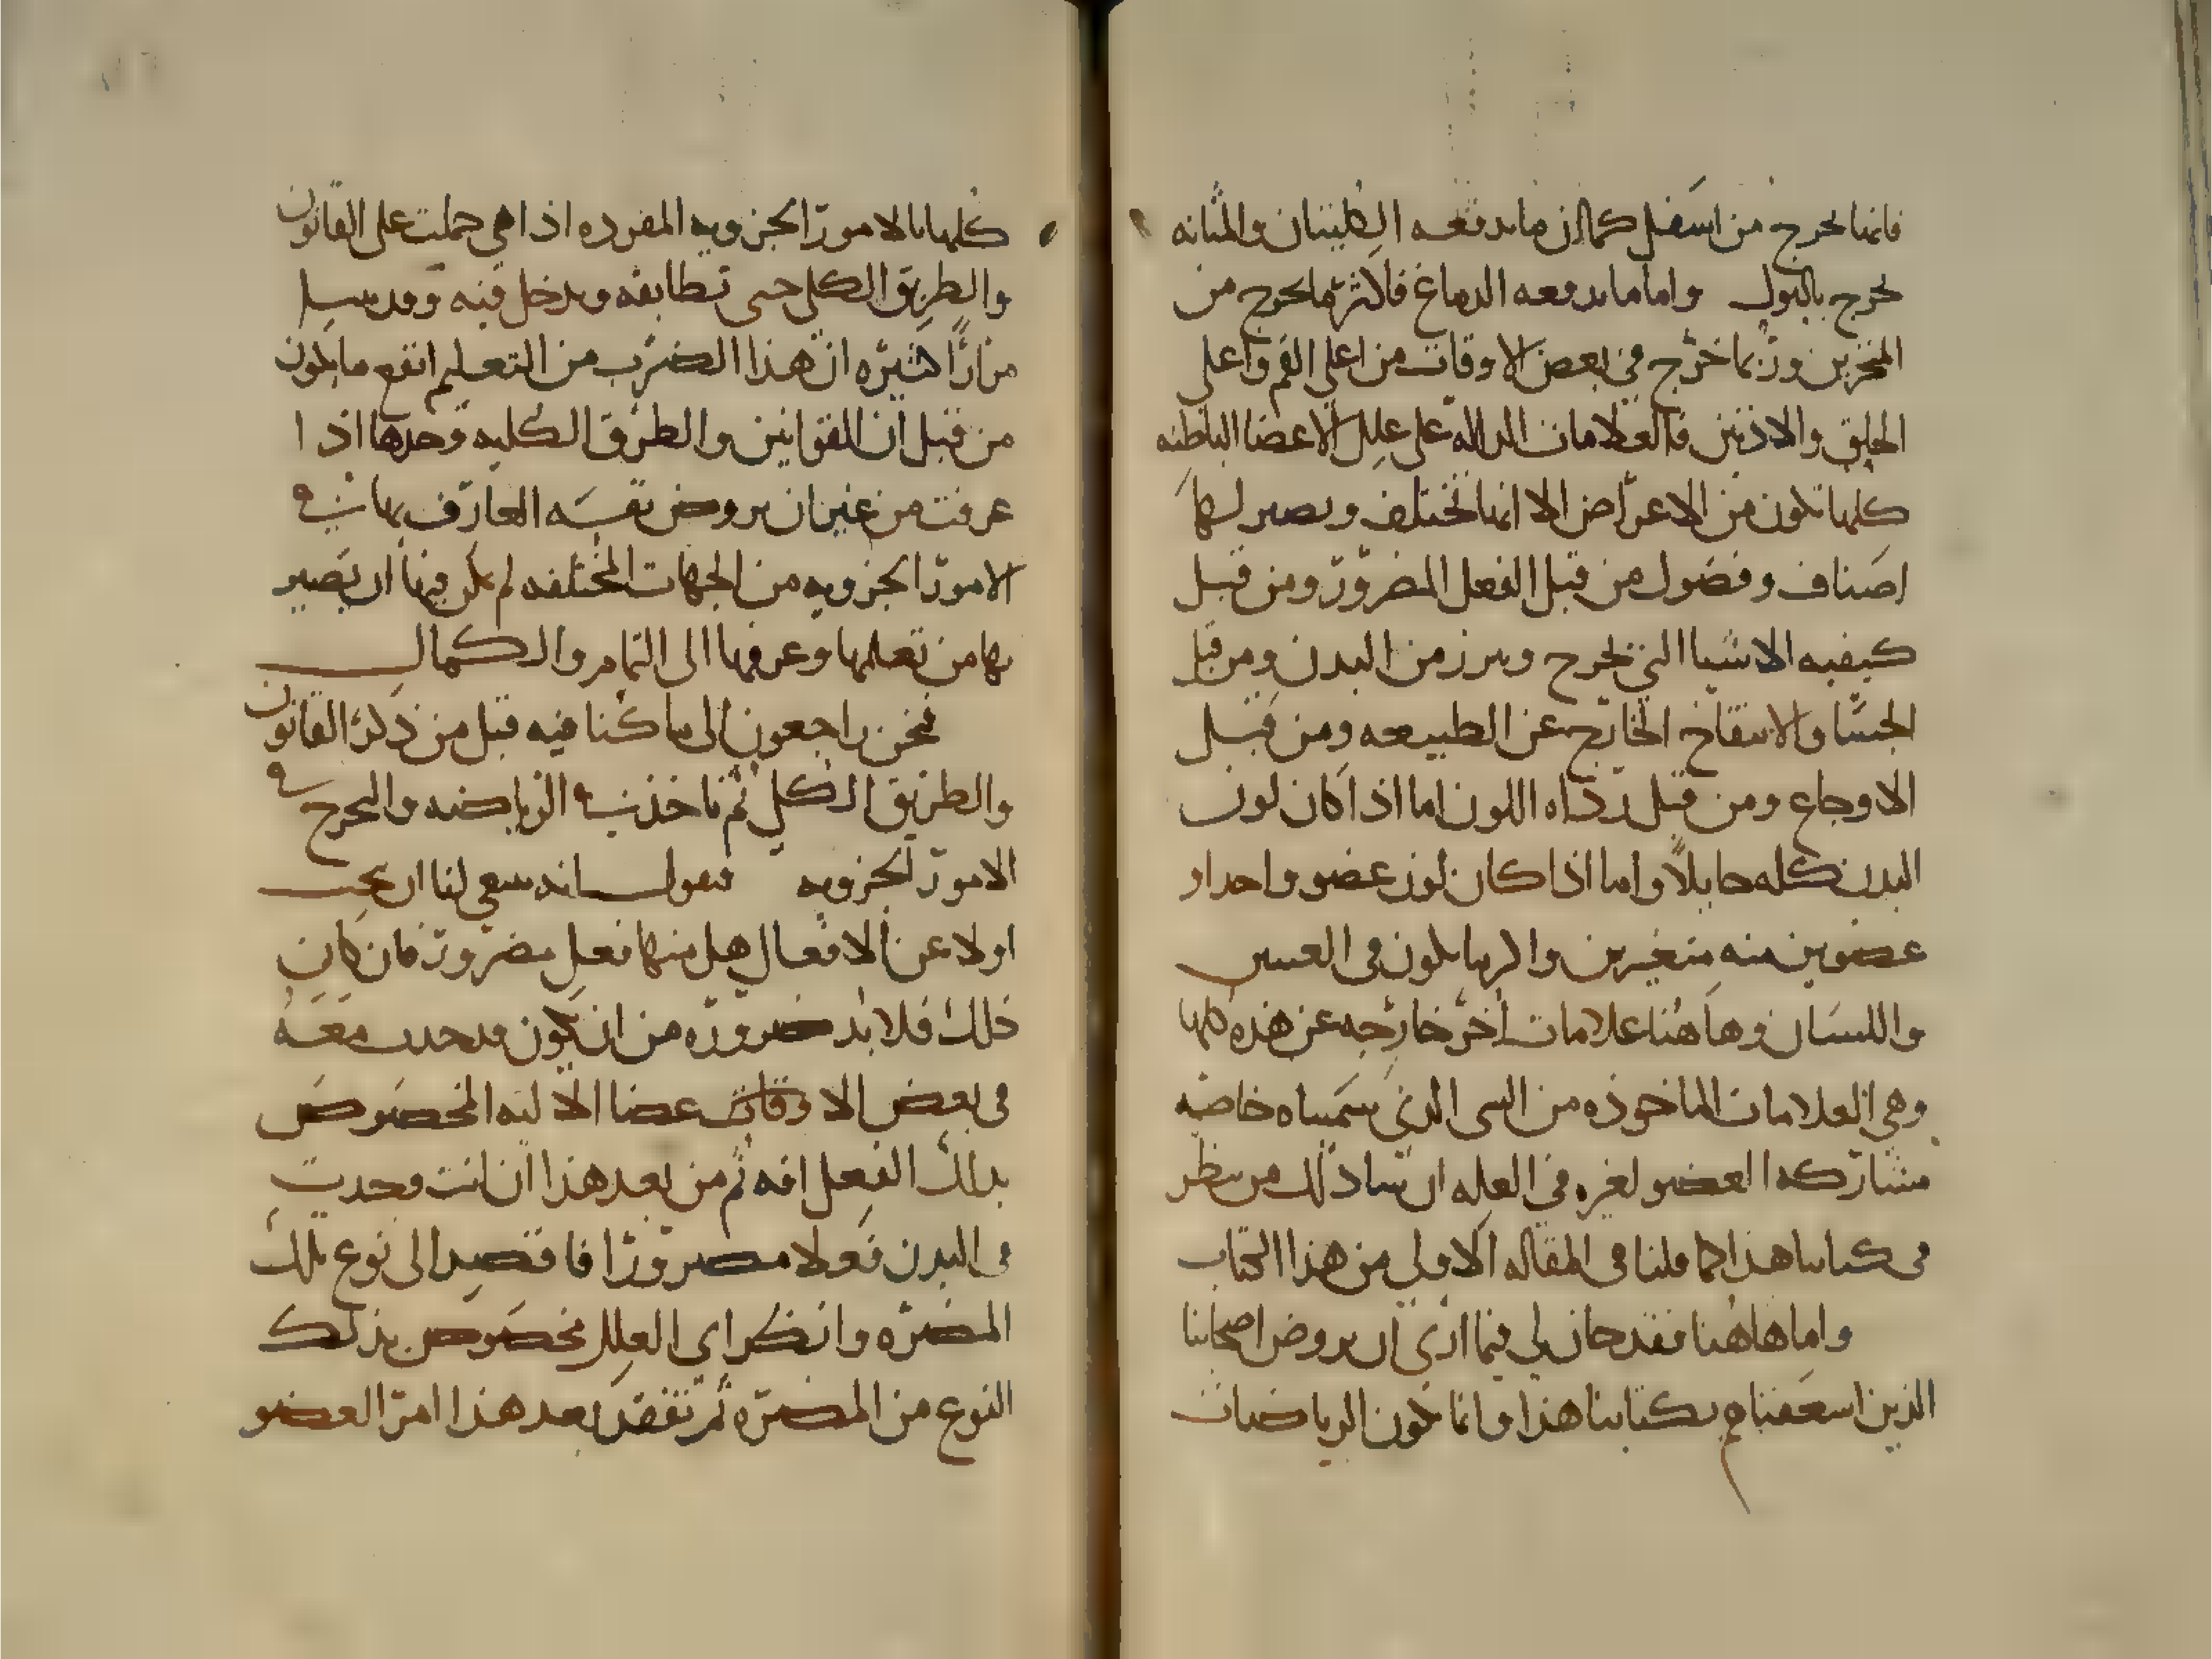 فانما يخرج من اسفل كما ان ما يدفعه الكليتان والمثانه
يخرج بالبول واما ما يدفعه الدماغ فاكثر ما يخرج من
المنخرين وربما خرج في بعض الاوقات من اعلى الفم واعلى
الحلق والاذنين فالعلامات الداله على علل الاعضا الباطنه
كلها تكون من الاعراض الا انها تختلف ويصير لها
اصناف وفصول من قبل الفعل المضرور ومن قبل
كيفيه الاشيا التي تخرج وتبرز من البدن ومن قبل
الجسا والانتفاخ الخارج عن الطبيعه ومن قبل
الاوجاع ومن قبل رداه اللون اما اذا كان لون
البدن كله حايلا واما اذا كان لون عضو واحد او
عضوين منه متغيرين واكثر ما يكون في العينين
واللسان وهاهنا علامات اخر خارجه عن هذه كلها
وهي العلامات الماخوذه من الشي الذي سميناه خاصه
مشاركه العضو لغيره في العله ان شا ذلك من ينظر
في كتابنا هذا كما قلنا في المقاله الاولى من هذا الكتاب
واما هاهنا فقد حان لي فيما ارى ان نروض اصحابنا
الذين اسعفناهم بكتابنا هذا وانما تكون الرياضات
كلها بالامور الجزويه المفرده اذا هي حملت على القانون
والطريق الكلي حتى تطابقه وتدخل فيه وقد بينا
مرارا كثيره ان هذا الضرب من التعليم انفع ما يكون
من قبل ان القوانين والطرق الكليه وحدها اذا
عرفت من غير ان يروض نفسه العارف بها في
الامور الجزويه من الجهات المختلفه لم يكن فيها ان تصير
بها من تعلمها وعرفها الى التمام والكمال
فنحن راجعون الى ما كنا فيه قبل من ذكر القانون
والطريق الكلي ثم ناخذ في الرياضه والتخرج في
الامور الجزويه فنقول انه ينبغي لنا ان نبحث
اولا عن الافعال هل منها فعل مضرور فان كان
ذلك فلا بد ضروره من ان يكون قد حدث معه
في بعض الاوقات عضا الاليه المخصوص
بذلك الفعل افه ثم من بعد هذا ان انت وجدت
في البدن فعلا مضرورا فاقصد الى نوع تلك
المضره وانظر اي العلل مخصوص بذلك
النوع من المضره ثم تفقد بعد هذا امر العضو